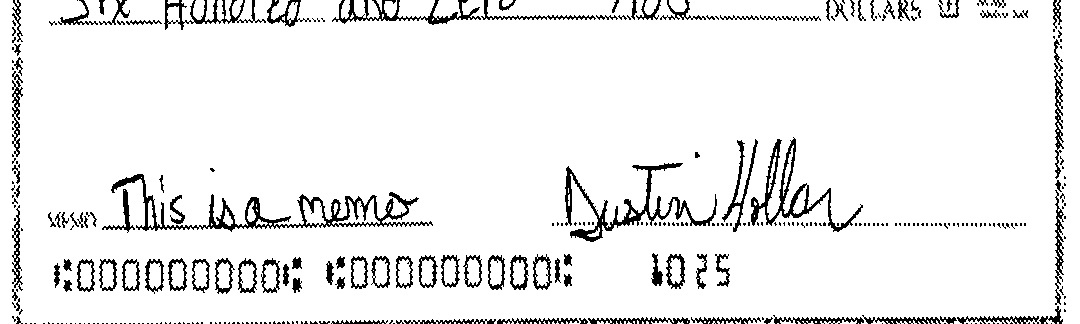 Six Hundred and Zero /100 DOLLARS
MEMO This is a memo Dustin Hollar
⑆000000000⑆ ⑆000000000⑆ 1025